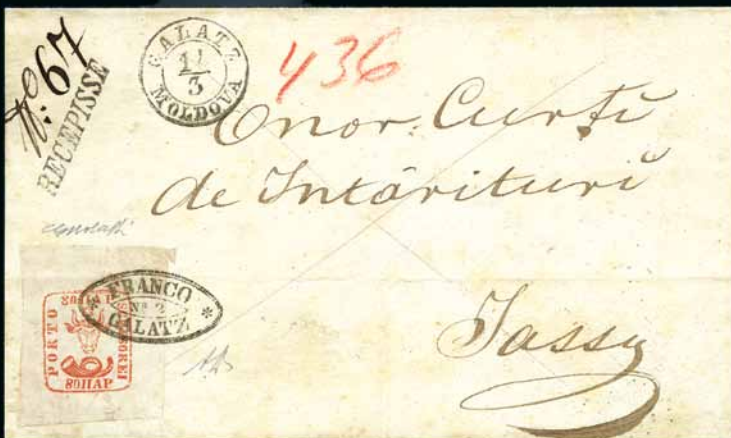 No: 67
RECEPISSE
GALATZ
11/3
MOLDOVA
436
Onor. Curți
de Intărituri
Jassy
* FRANCO *
No 2
GALATZ
PORTO
80 ПАР